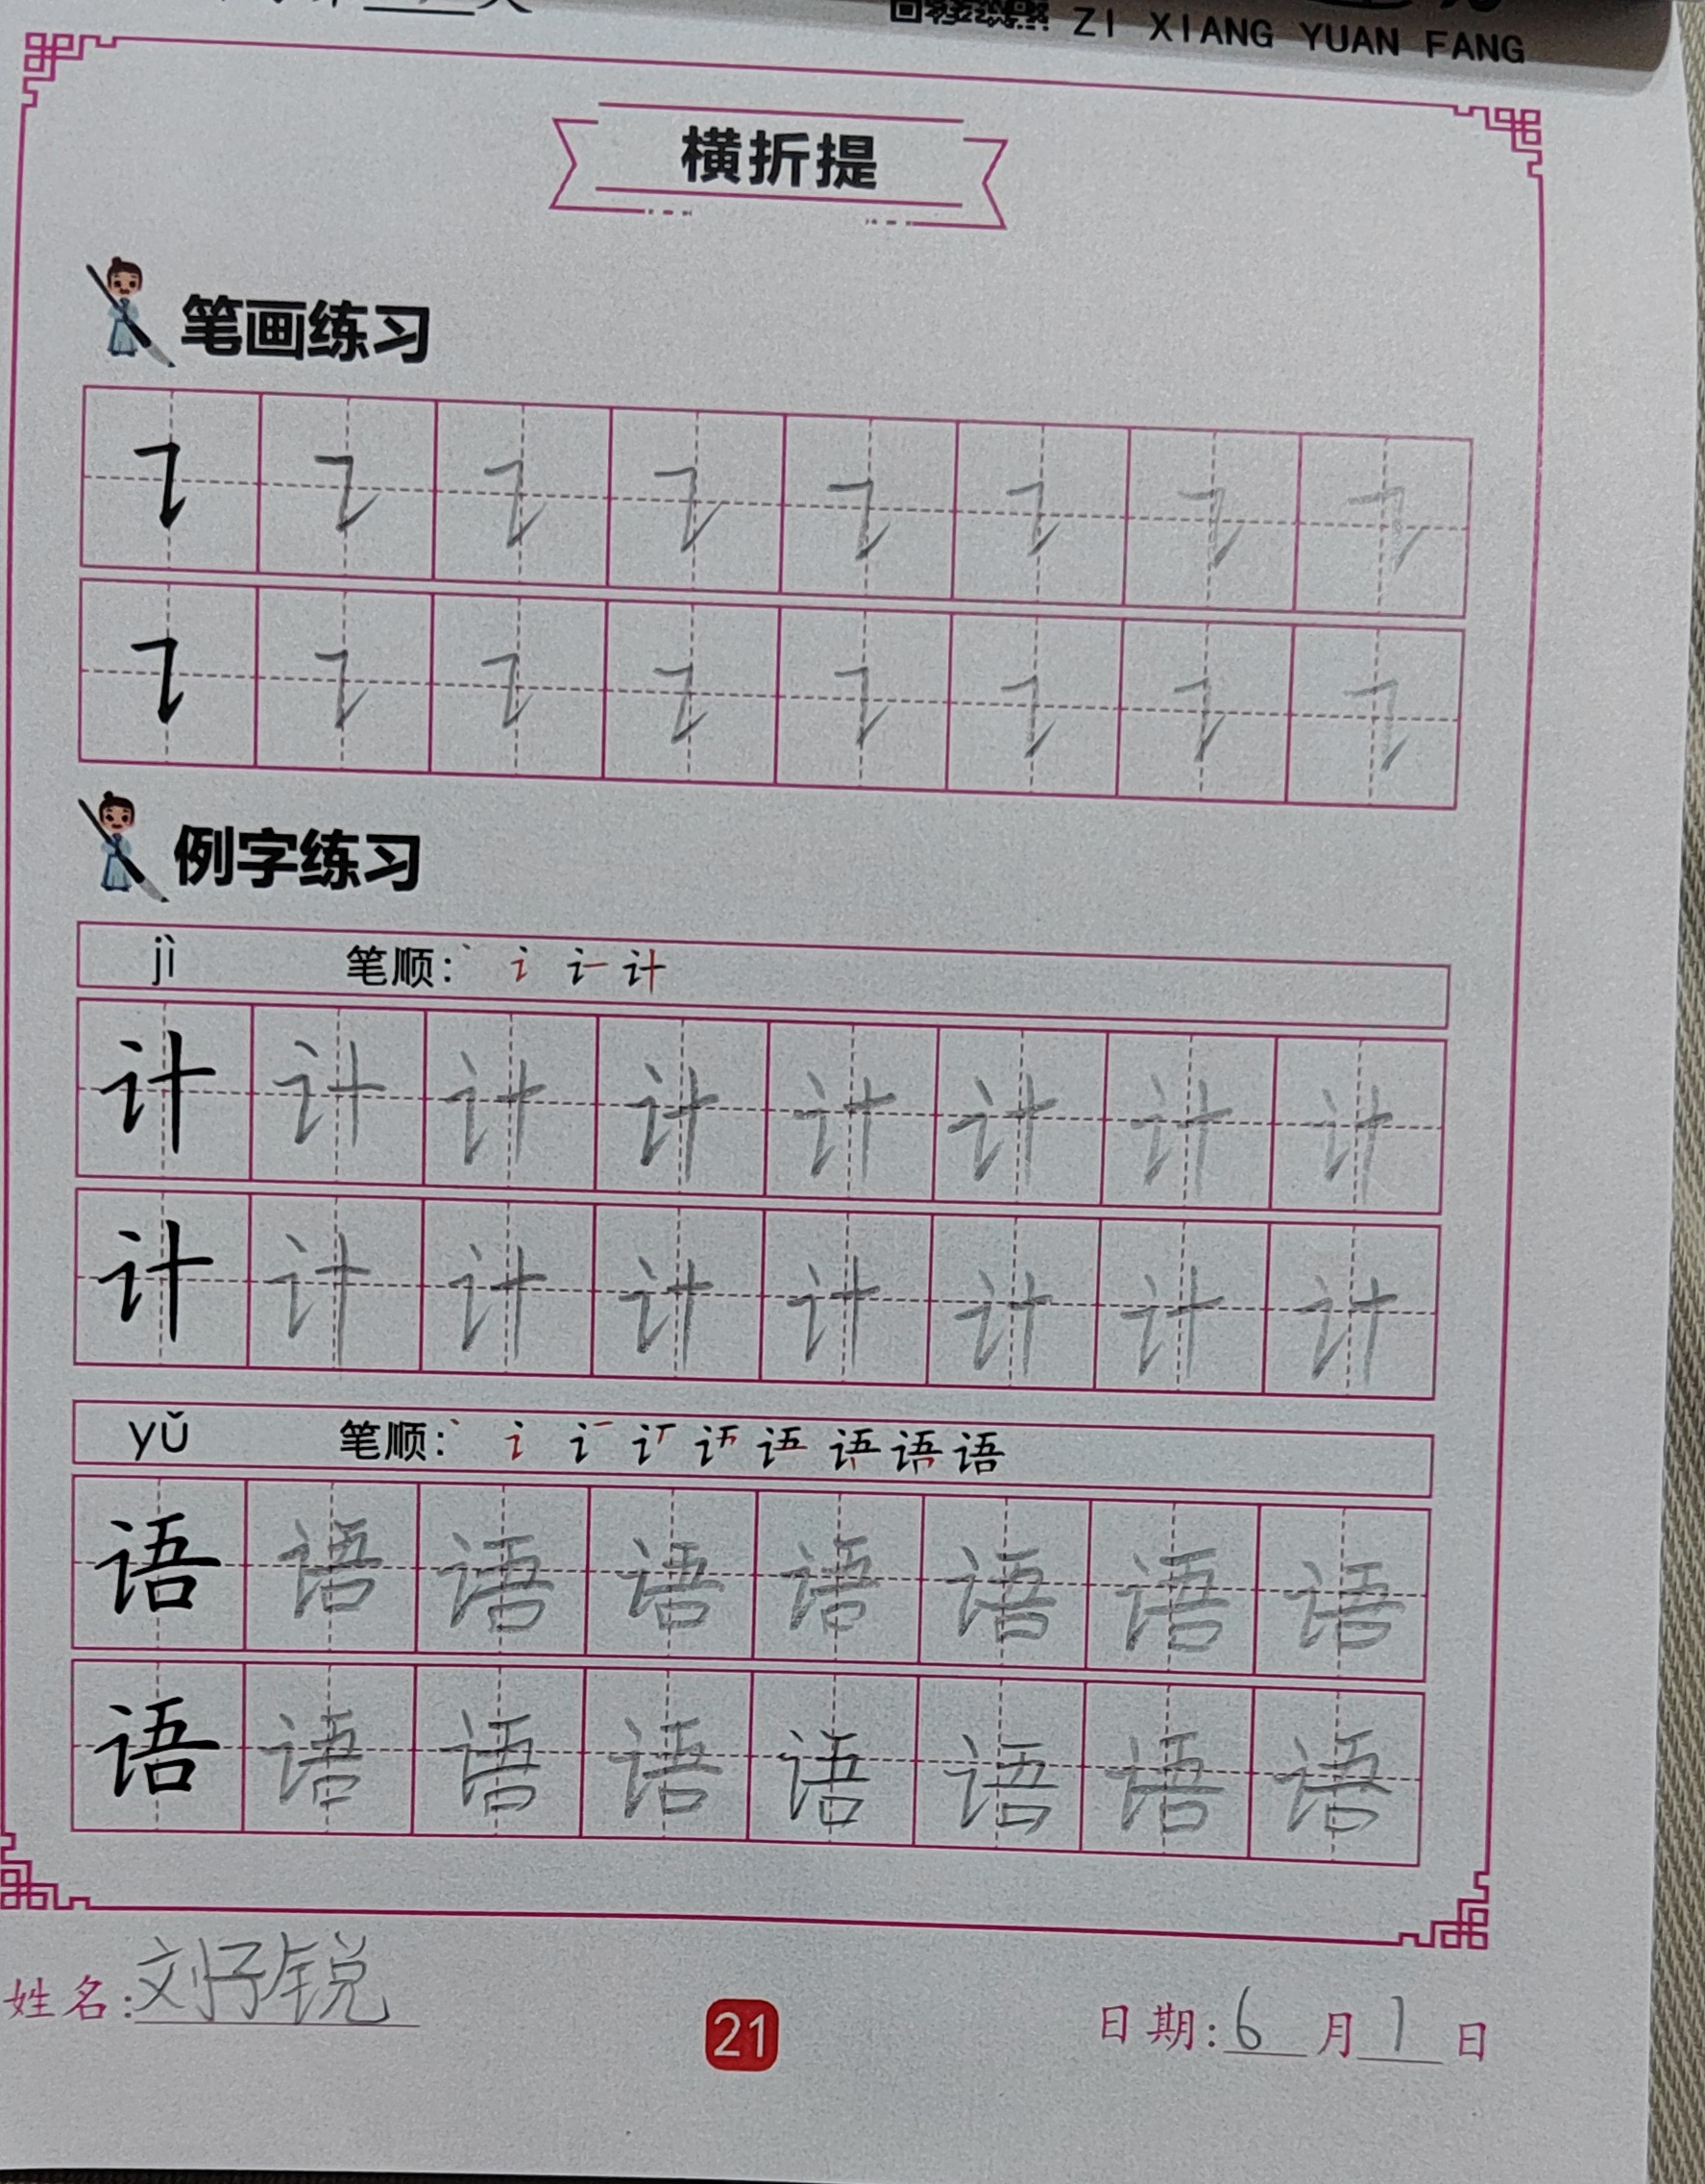 ZI XIANG YUAN FANG
横折提
笔画练习
㇊ ㇊ ㇊ ㇊ ㇊ ㇊ ㇊ ㇊
㇊ ㇊ ㇊ ㇊ ㇊ ㇊ ㇊ ㇊
例字练习
jì 笔顺:
计 计 计 计 计 计 计 计
计 计 计 计 计 计 计 计
yǔ 笔顺:
语 语 语 语 语 语 语 语
语 语 语 语 语 语 语 语
姓名:刘子锐
21
日期:6月1日